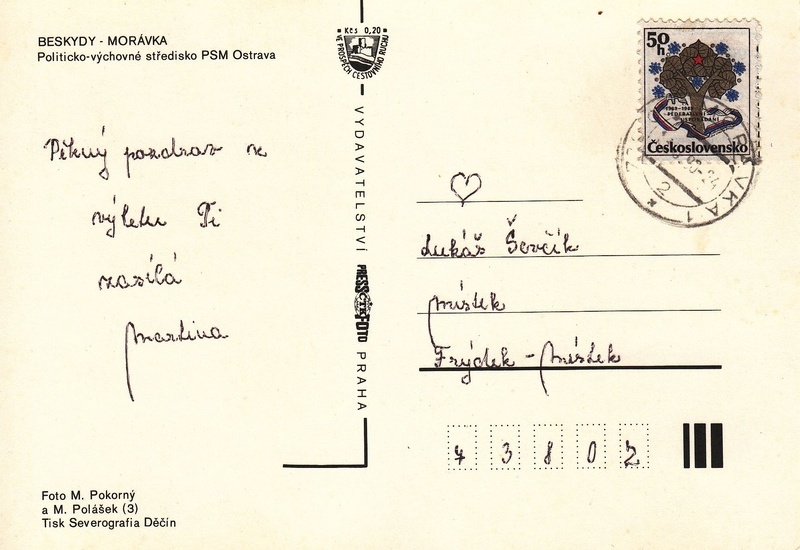 BESKYDY - MORÁVKA
Politicko-výchovné středisko PSM Ostrava
Pěkný pozdrav z
výletu Ti
zasílá
Martina
Foto M. Pokorný
a M. Polášek (3)
Tisk Severografia Děčín
Kčs 0,20
VE PROSPĚCH CESTOVNÍHO RUCHU
VYDAVATELSTVÍ PRESSFOTO PRAHA
ČTK
50 h
1969-1989
FEDERATIVNÍ
USPOŘÁDÁNÍ
Československo
Lukáš Ševčík
Místek
Frýdek - Místek
43802